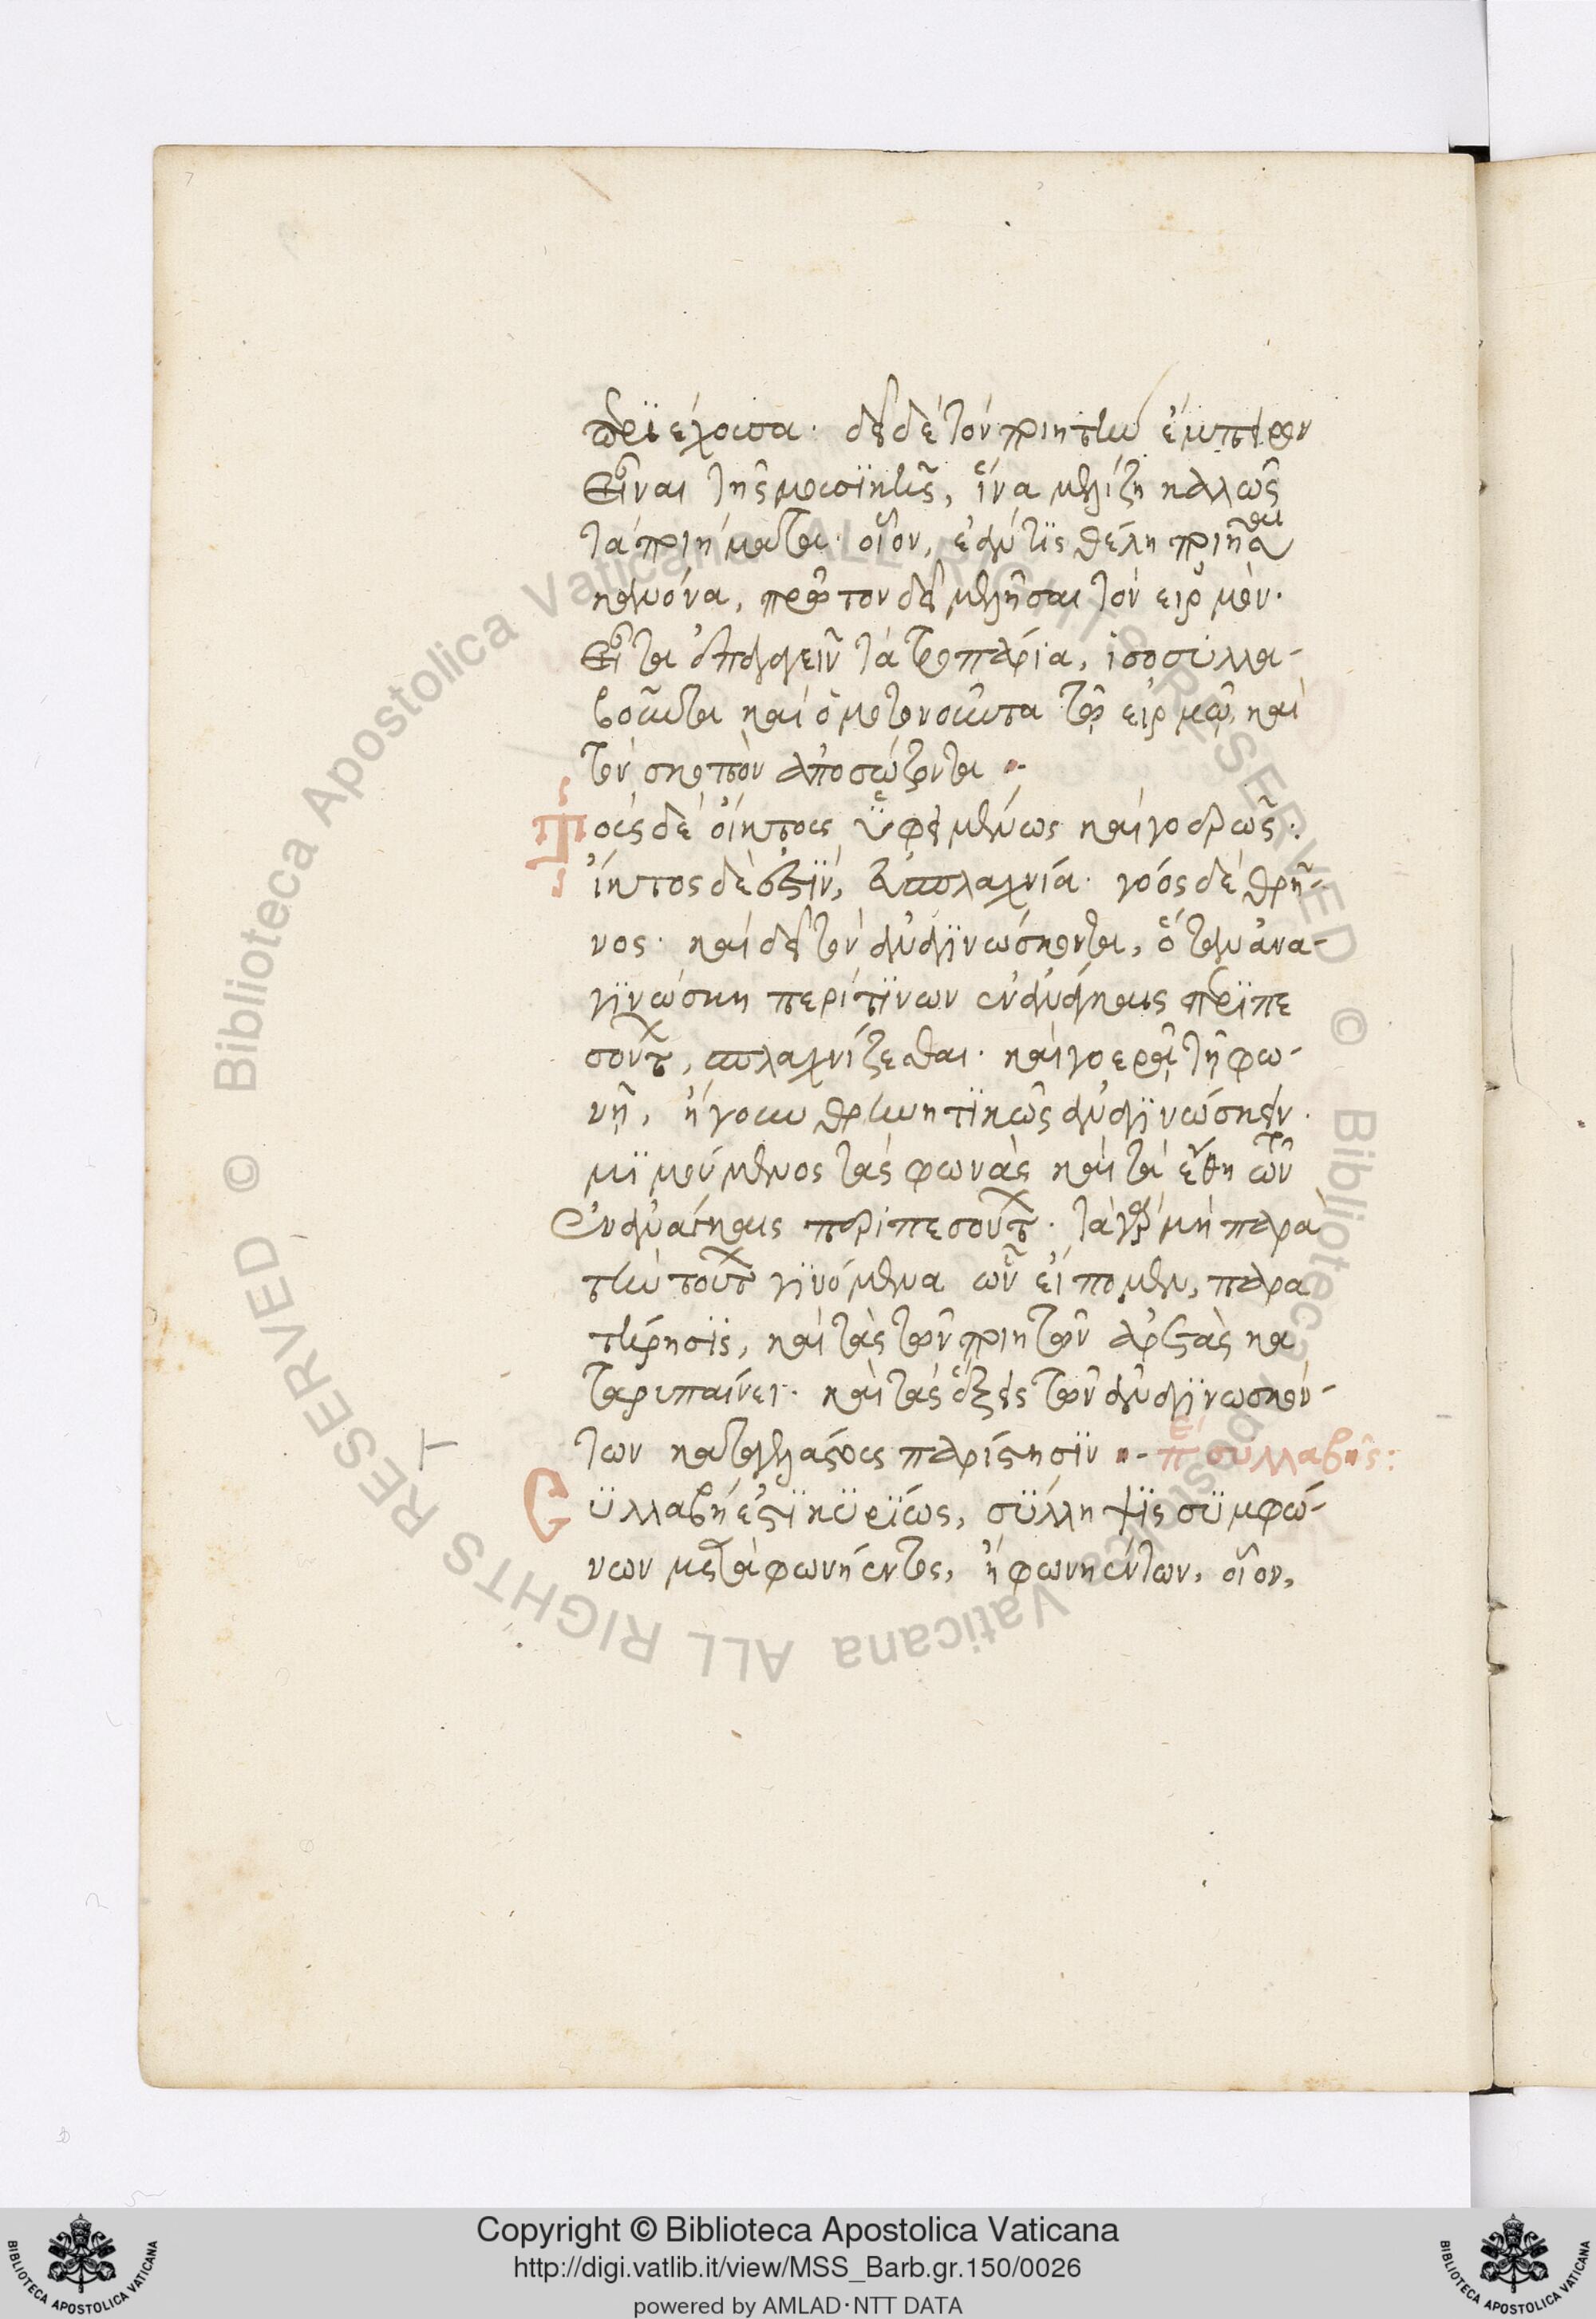 περϊέχουσα· δεῖ δὲ τὸν ποιητὴν ἔμπειρον
εἶναι τῆς μουσϊκῆς, ἵνα μελίζη καλῶς
τὰ ποιήματα· οἷον, ἐάν τϊς θέλη ποιῆσαι
κανόνα, πρῶτον δεῖ μελῆσαι τὸν εἱρμόν·
εἶτα ἐπαγαγεῖν τὰ τροπάρια, ἰσοσυλλα-
βοῦντα καὶ ὁμοτονοῦντα τῷ εἱρμῷ, καὶ
τὸν σκοπὸν ἀποσώζοντα :-
Τοὺς δὲ οἴκτους ὑφειμένως καὶ γοερῶς·
οἶκτος δέ ἐστϊν, ἡ εὐσπλαχνία· γόος δὲ θρῆ-
νος· καὶ δεῖ τὸν ἀναγϊνώσκοντα, ὅταν ἀνα-
γϊνώσκη περί τϊνων ἐν ἀνάγκαις περϊπε
σόντων, σπλαχνίζεσθαι· καὶ γοερᾷ τῇ φω-
νῇ, ἤγουν θρηνητϊκῶς ἀναγϊνώσκειν·
μϊμούμενος τὰς φωνὰς καὶ τὰ ἔθη τῶν
ἐν ἀνάγκαις περιπεσόντων· τὰ γὰρ μὴ παρὰ
τὴν τούτων γϊνόμενα ὧν εἴπομεν, παρα
τήρησϊν, καὶ τὰς τῶν ποιητῶν ἀρετὰς κα
ταρυπαίνει· καὶ τὰς ἕξεις τῶν ἀναγϊνωσκόν-
των καταγελάστους παρίστησϊν :- περὶ συλλαβῆς:
Συλλαβή ἐστϊ κϋρϊως, σϋλληψϊς σϋμφώ-
νων μετὰ φωνήεντος, ἢ φωνηέντων, οἷον,
Copyright © Biblioteca Apostolica Vaticana
http://digi.vatlib.it/view/MSS_Barb.gr.150/0026
powered by AMLAD·NTT DATA